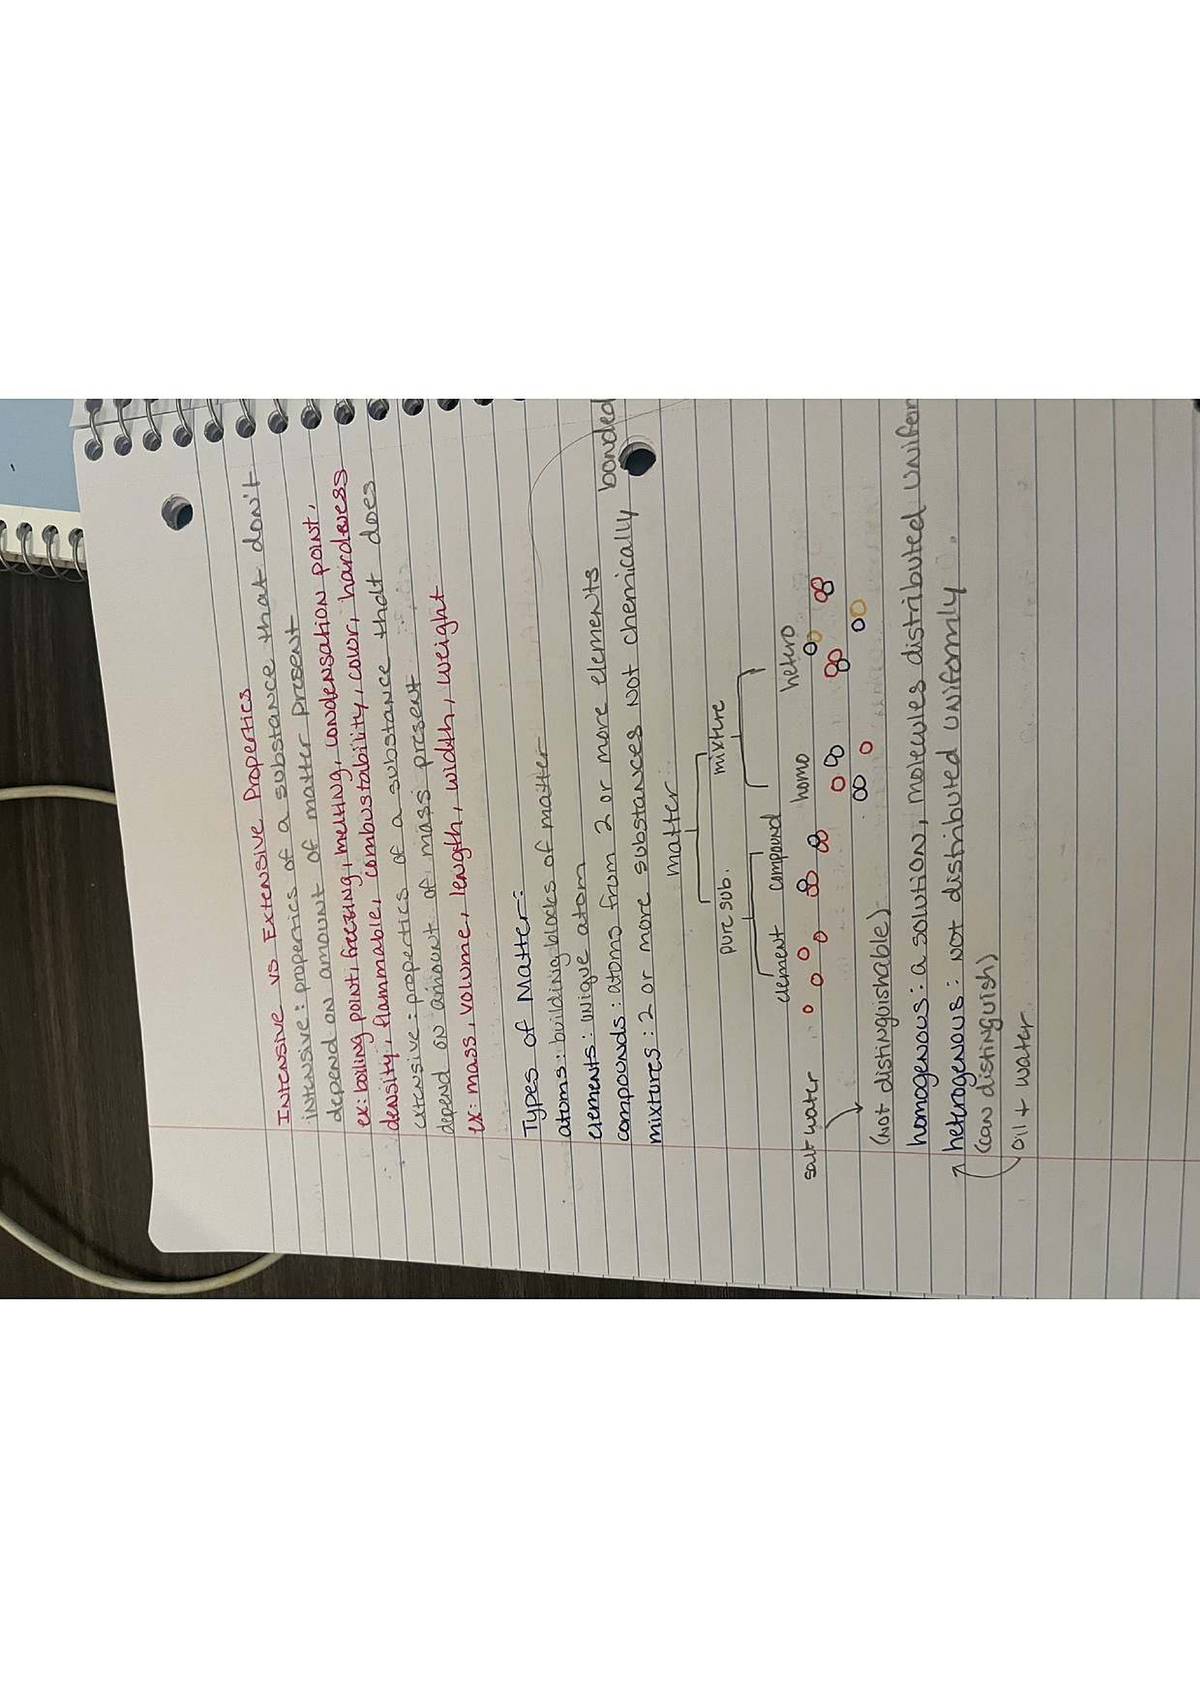 Intensive vs Extensive Properties
intensive: properties of a substance that don't
depend on amount of matter present
ex: boiling point, freezing, melting, condensation point,
density, flammable, combustability, color, hardness
extensive: properties of a substance that does
depend on amount of mass present
ex: mass, volume, length, width, weight
Types of Matter:
atoms: building blocks of matter
elements: unique atom
compounds: atoms from 2 or more elements
mixtures: 2 or more substances not chemically bonded
matter
pure sub. mixture
element compound homo hetero
salt water
(not distinguishable)
homogenous: a solution, molecules distributed unifor
heterogenous: not distributed uniformly.
(can distinguish)
oil + water